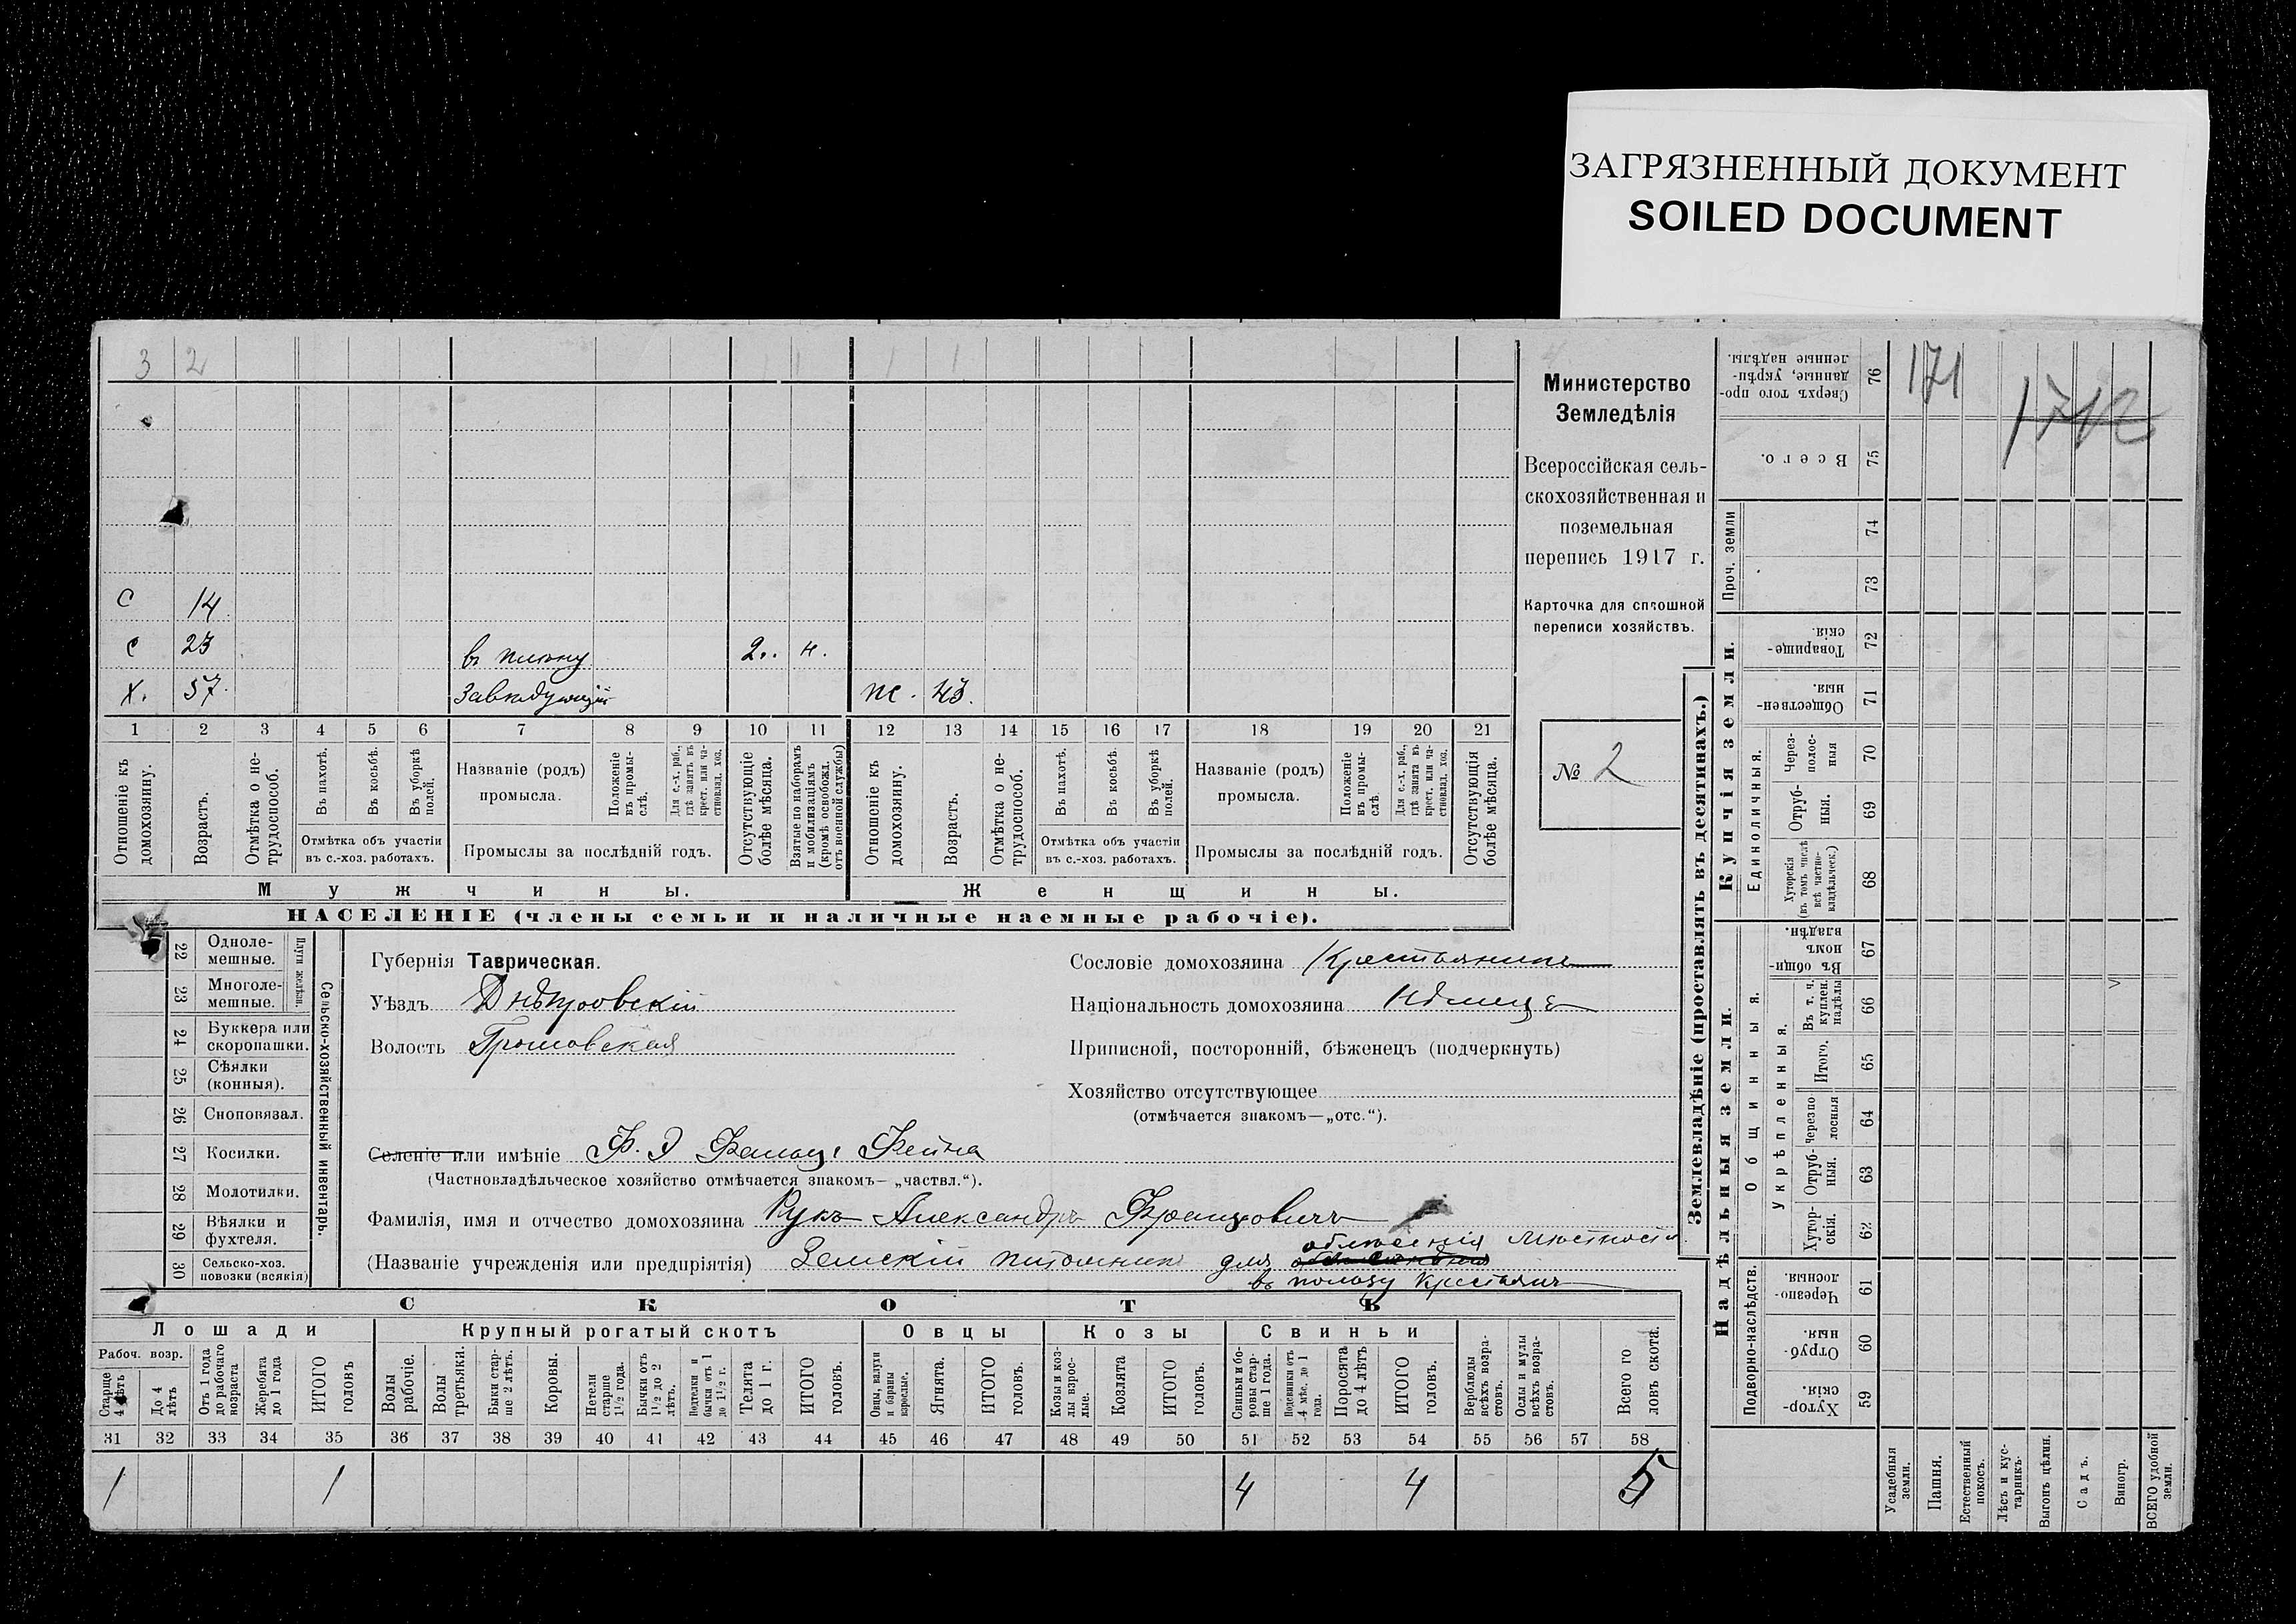 ЗАГРЯЗНЕННЫЙ ДОКУМЕНТ
SOILED DOCUMENT
3 2
С 14
С 23 въ плѣну 2.. н.
Х. 57. Завѣдующій ж. 43.
1 2 3 4 5 6 7 8 9 10 11 12 13 14 15 16 17 18 19 20 21
Отношеніе къ домохозяину.
Возрастъ.
Отмѣтка о не-
трудоспособ.
Въ пахотѣ.
Въ косьбѣ.
Въ уборкѣ
полей.
Отмѣтка объ участіи
въ с.-хоз. работахъ.
Названіе (родъ)
промысла.
Положеніе
въ промы-
слѣ.
Для с.-х. раб.,
гдѣ занятъ въ
крест. или ча-
стновлад. хоз.
Промыслы за послѣдній годъ.
Отсутствующіе
болѣе мѣсяца.
Взятые по наборамъ
и мобилизаціямъ
(кромѣ освобожд.
отъ военной службы)
Отношеніе къ
домохозяину.
Возрастъ.
Отмѣтка о не-
трудоспособ.
Въ пахотѣ.
Въ косьбѣ.
Въ уборкѣ
полей.
Отмѣтка объ участіи
въ с.-хоз. работахъ.
Названіе (родъ)
промысла.
Положеніе
въ промы-
слѣ.
Для с.-х. раб.,
гдѣ занята въ
крест. или ча-
стновлад. хоз.
Промыслы за послѣдній годъ.
Отсутствующія
болѣе мѣсяца.
Мужчины.
Женщины.
НАСЕЛЕНІЕ (члены семьи и наличные наемные рабочіе).
Министерство
Земледѣлія
Всероссійская сель-
скохозяйственная и
поземельная
перепись 1917 г.
Карточка для сплошной
переписи хозяйствъ.
№ 2
22 Одноле-
мешные.
23 Многоле-
мешные.
Плуги желѣзн.
24 Буккера или
скоропашки.
25 Сѣялки
(конныя).
26 Сноповязал.
27 Косилки.
28 Молотилки.
29 Вѣялки и
фухтеля.
30 Сельско-хоз.
повозки (всякія)
Сельско-хозяйственный инвентарь.
Губернія Таврическая.
Уѣздъ Днѣпровскій
Волость Громовская
Сословіе домохозяина Крестьянинъ
Національность домохозяина Нѣмецъ
Приписной, посторонній, бѣженецъ (подчеркнуть)
Хозяйство отсутствующее
(отмѣчается знакомъ—„отс.“).
Селеніе или имѣніе Ф. Э Фальцъ Фейна
(Частновладѣльческое хозяйство отмѣчается знакомъ—„частвл.“).
Фамилія, имя и отчество домохозяина Рукъ Александръ Францовичъ
(Названіе учрежденія или предпріятія) Земскій питомникъ для облѣсенія мѣстности
въ пользу крестьянъ
СКОТЪ
Лошади
Рабоч. возр.
Старше
4 лѣтъ
До 4
лѣтъ
Отъ 1 года
до рабочаго
возраста
Жеребята
до 1 года
ИТОГО
головъ
Крупный рогатый скотъ
Волы
рабочіе.
Волы
третьяки.
Быки стар-
ше 2 лѣтъ.
Коровы.
Нетели
старше
1½ года.
Бычки отъ
1½ до 2
лѣтъ.
Подтелки и
бычки отъ 1
до 1½ г.
Телята
до 1 г.
ИТОГО
головъ.
Овцы
Овцы, валухи
и бараны
взрослые.
Ягнята.
ИТОГО
головъ.
Козы
Козы и коз-
лы взрос-
лые.
Козлята
ИТОГО
головъ.
Свиньи
Свиньи и бо-
ровы стар-
ше 1 года.
Подсвинки отъ
4 мѣс. до 1
года.
Поросята
до 4 лѣтъ
ИТОГО
головъ.
Верблюды
всѣхъ возра-
стовъ.
Ослы и мулы
всѣхъ возра-
стовъ.
Всего го
ловъ скота.
31 32 33 34 35 36 37 38 39 40 41 42 43 44 45 46 47 48 49 50 51 52 53 54 55 56 57 58
1 1 4 4 5
Землевладѣніе (проставлять въ десятинахъ.)
Купчія земли.
Надѣльныя земли.
Сверхъ того про-
данные, укрѣп-
ленные надѣлы.
76
Всего.
75
Проч. земли
74
73
Товарище-
скія.
72
Обществен-
ныя.
71
Единоличныя.
Через-
полос-
ныя
70
Отруб-
ныя.
69
Хуторскія
(въ томъ числѣ
всѣ частно-
владѣльческ.)
68
Общинныя.
Въ общи-
номъ
владѣн.
67
Укрѣпленныя.
Въ т. ч.
куплен.
надѣлы
66
Итого.
65
Черезпо
лосныя
64
Отруб-
ныя.
63
Хутор-
скія.
62
Подворно-наслѣдств.
Черезпо-
лосныя.
61
Отруб-
ныя.
60
Хутор-
скія.
59
Усадебныя
земли.
Пашня.
Естественный
покосъ.
Лѣсъ и кус-
тарникъ.
Выгонъ цѣлин.
Садъ.
Виногр.
ВСЕГО удобной
земли.
171
1712